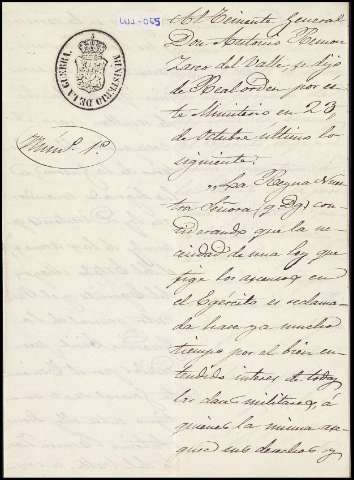 MINISTERIO DE LA GUERRA.
Núm.º 1º
Al Teniente General
Don Antonio Remon
Zarco del Valle se dijo
de Real orden por es-
te Ministerio en 23
de Octubre último lo
siguiente:
"La Reyna Nues-
tra Señora (q. D. g.) con-
siderando que la ne-
cesidad de una ley que
fije los ascensos en
el Egército es reclama-
da hace ya mucho
tiempo por el bien en-
tendido interes de todas
las clases militares, á
quienes la misma ase-
gure sus derechos y